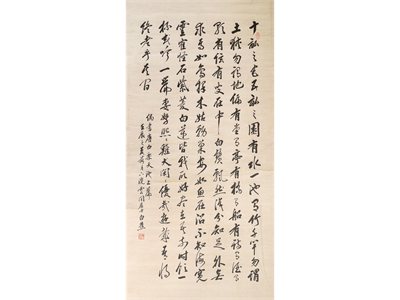 十畝之宅五畝之園有水一池有竹千竿勿謂
土狹勿謂地偏有堂有亭有橋有船有書有酒
有歌有弦有叟在中白鬚飄然識分知足外無
求焉如鳥擇木姑務巢安如魚居沼不知海寬
靈雀怪石紫菱白蓮皆我所好盡在我前時飲一
杯或吟一篇妻孥熙熙雞犬閑閑優哉游哉吾將
終老乎其間
偶書唐白樂天池上篇
白蕉